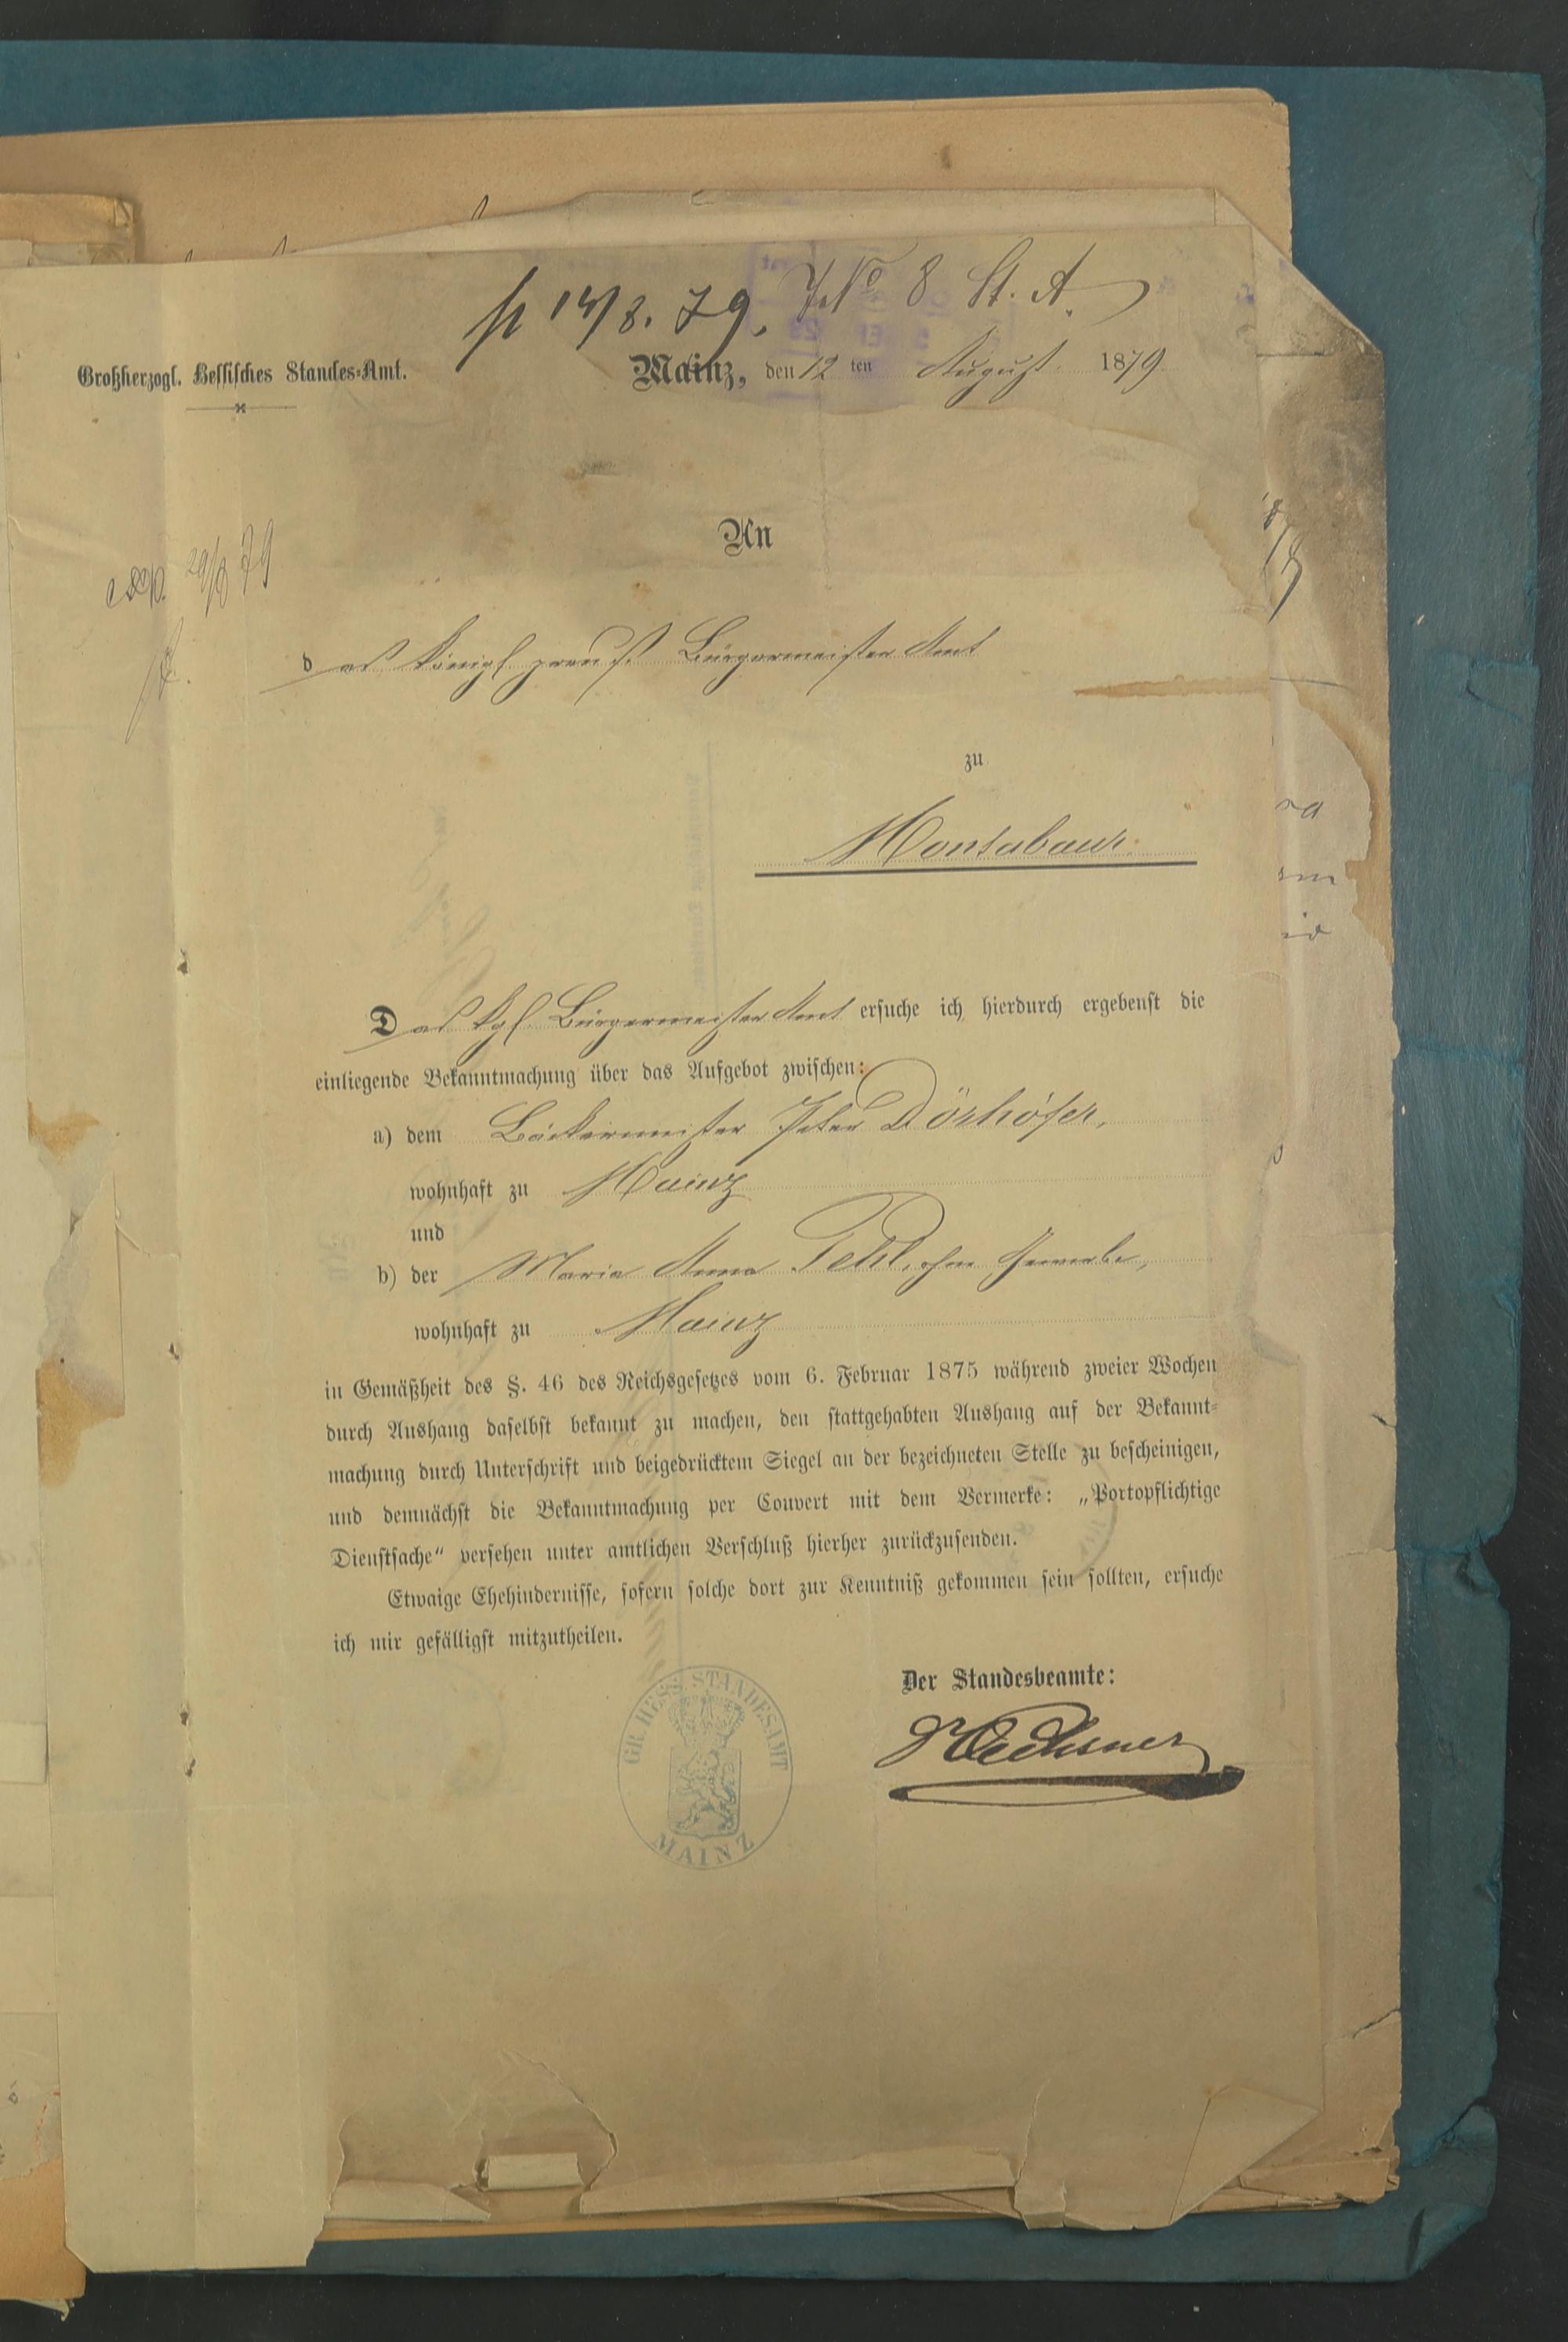 pr 14/8. 79. J.No 8 St. A.
Großherzogl. Hessisches Standes-Amt.
Mainz, den 12 ten August 1879
An
exp. 29/8 79
das Königl. preuß. Bürgermeister Amt
zu
Montabaur.
Das Kgl. Bürgermeister Amt ersuche ich hierdurch ergebenst die
einliegende Bekanntmachung über das Aufgebot zwischen:
a) dem Bäckermeister Peter Dörhöfer,
wohnhaft zu Mainz
und
b) der Maria Anna Fehl, ohne Gewerbe,
wohnhaft zu Mainz
in Gemäßheit des §. 46 des Reichsgesetzes vom 6. Februar 1875 während zweier Wochen
durch Aushang daselbst bekannt zu machen, den stattgehabten Aushang auf der Bekannt-
machung durch Unterschrift und beigedrücktem Siegel an der bezeichneten Stelle zu bescheinigen,
und demnächst die Bekanntmachung per Couvert mit dem Vermerke: „Portopflichtige
Dienstsache“ versehen unter amtlichen Verschluß hierher zurückzusenden.
Etwaige Ehehindernisse, sofern solche dort zur Kenntniß gekommen sein sollten, ersuche
ich mir gefälligst mitzutheilen.
Der Standesbeamte:
GR. HESS. STANDESAMT
MAINZ